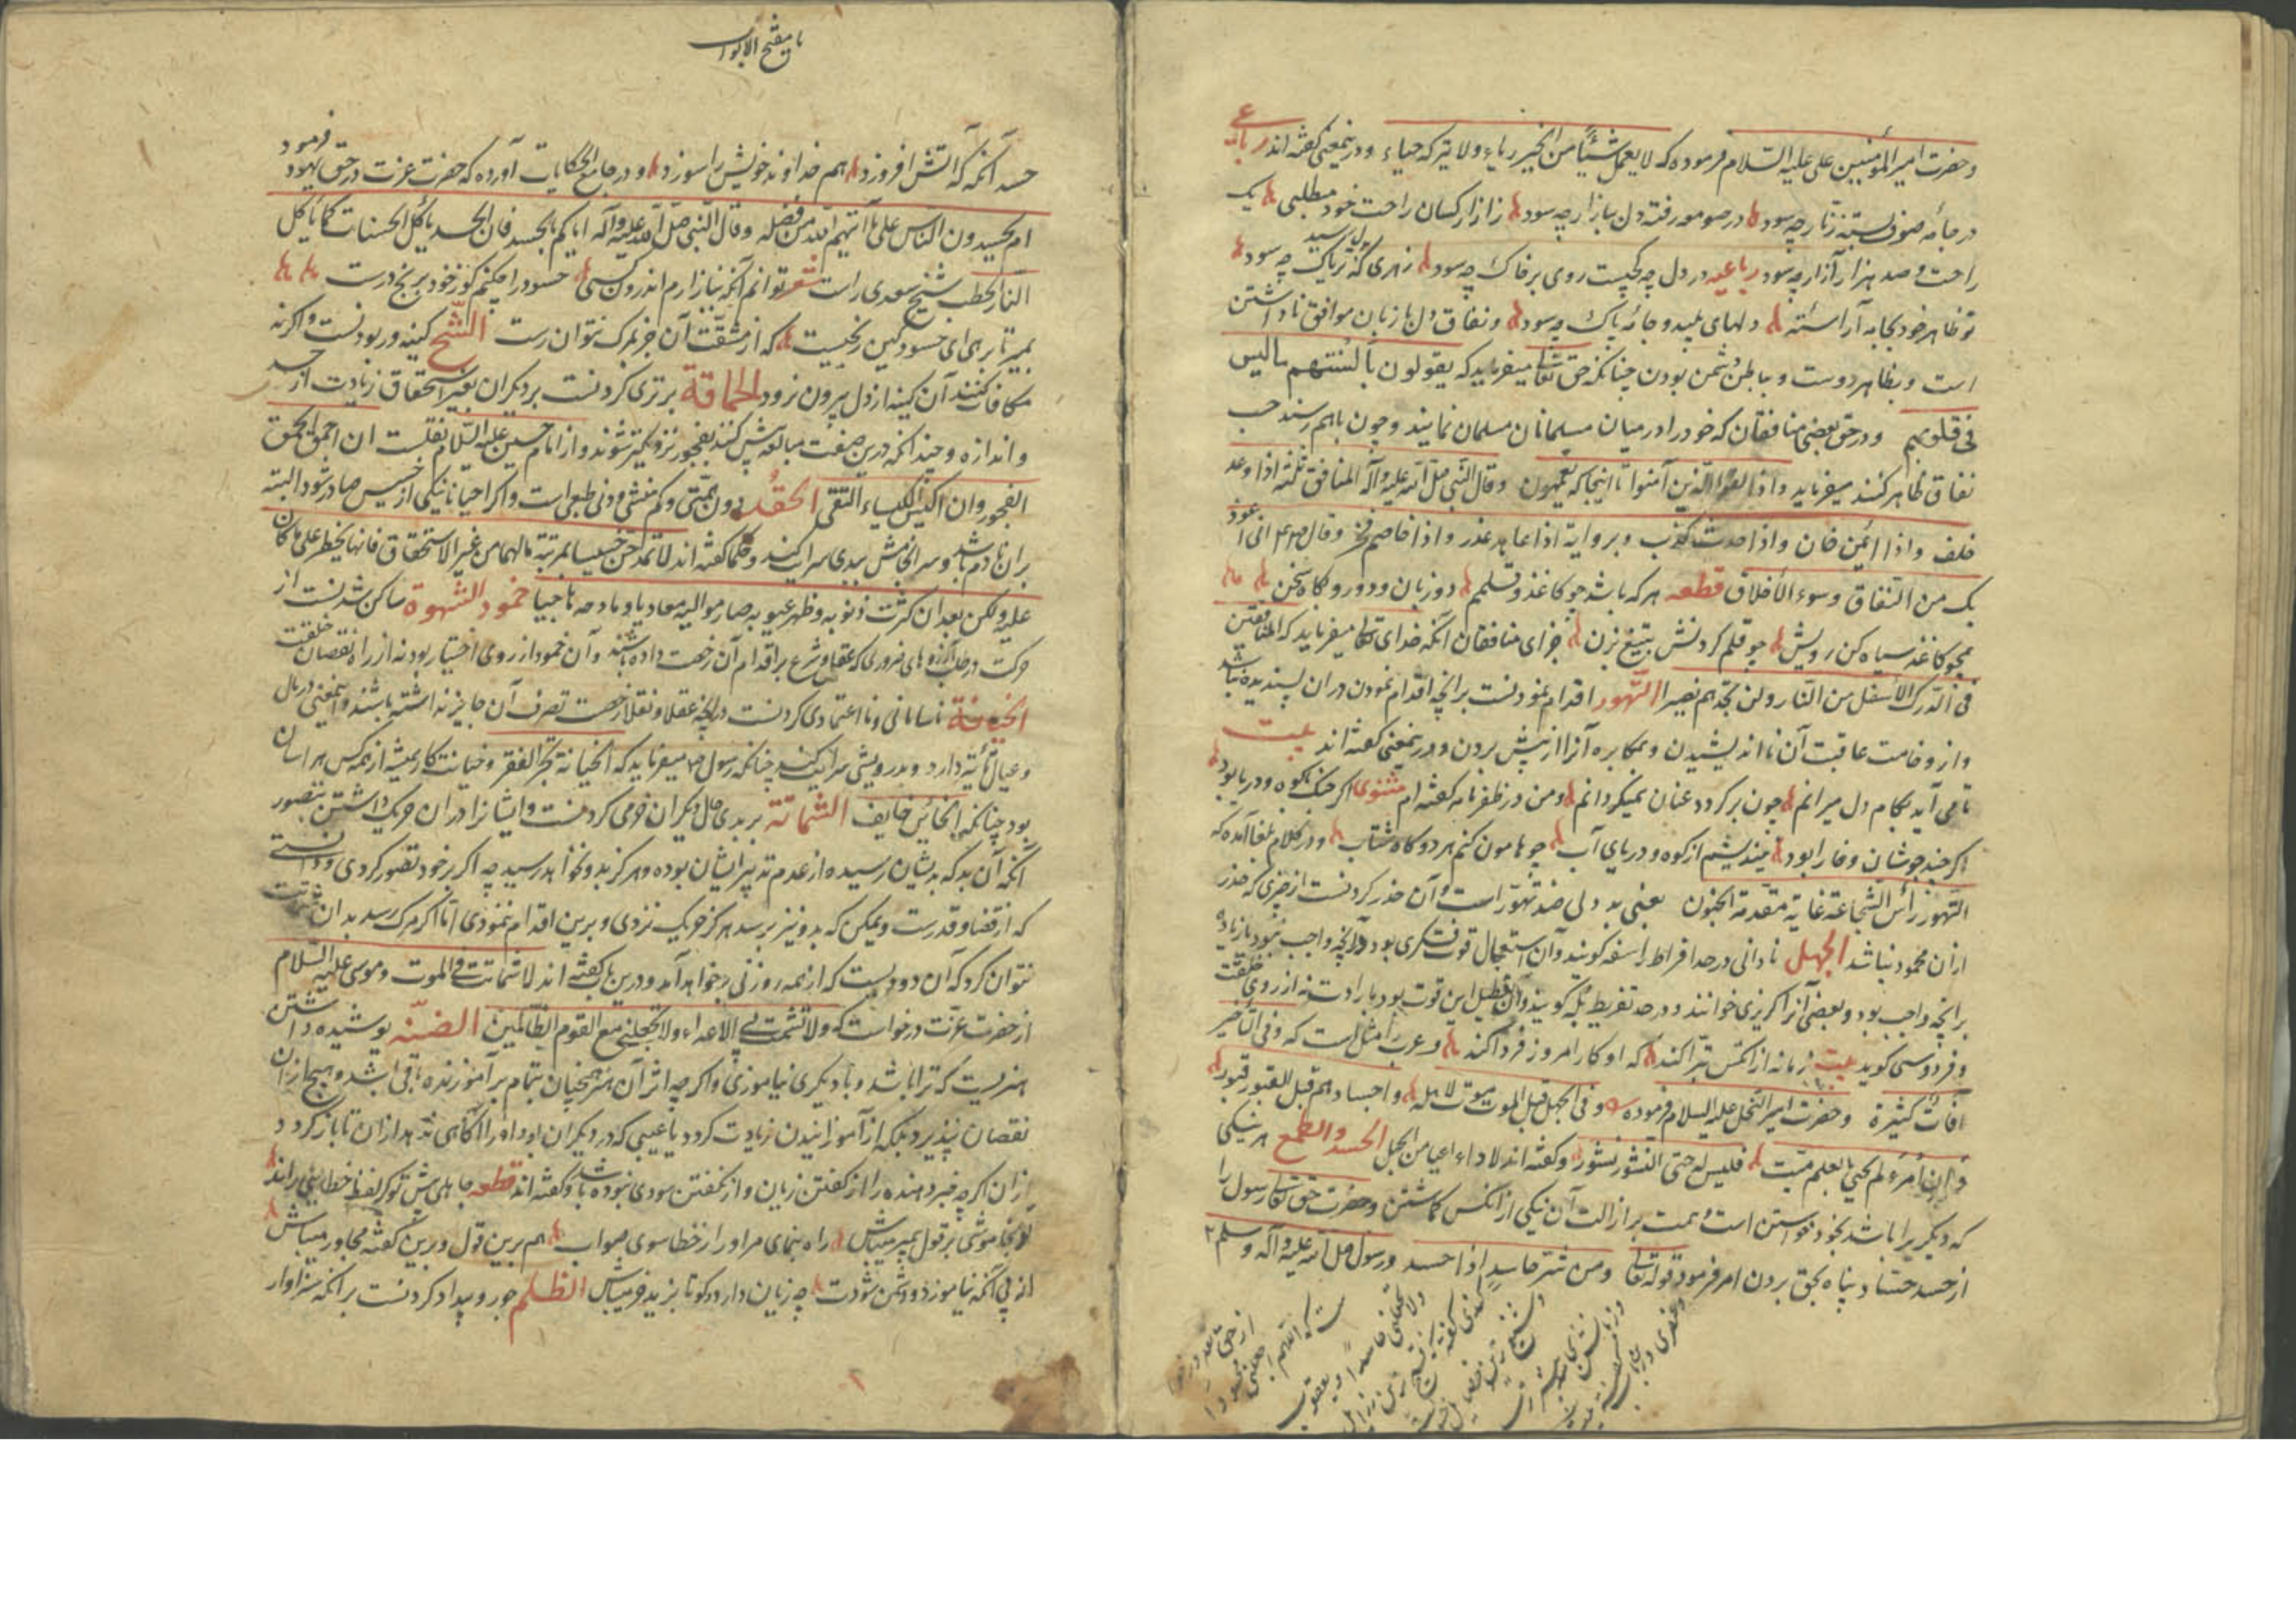 و حضرت امیر المؤمنین علی علیه السّلام فرموده که لا یعمل شیئًا من الخیر ریاء ولا یترکه حیاء و درینمعنی گفته اند رباعی
در جامه صوف بسته زنّار چه سود در صومعه رفته دل ببازار چه سود ز آزار کسان راحت خود میطلبی یک
راحت و صد هزار آزار چه سود رباعیه در دل چه کجیست روی بر خاک چه سود زهری که بدل رسید تریاک چه سود
تو ظاهر خود بجامه آراسته دلهای پلید و جامهٔ پاک چه سود و نفاق دل با زبان موافق ناداشتن
است و بظاهر دوست و بباطن دشمن بودن چنانکه حق تعالی میفرماید که یقولون بألسنتهم ما لیس
فی قلوبهم و در حق بعضی منافقان که خود را در میان مسلمانان مسلمان نمایند و چون باهم رسند
نفاق ظاهر کنند میفرماید و اذا لقوا الّذین آمنوا تا اینجا که یعمهون و قال النّبی صلّی الله علیه و آله المنافق ثلثه اذا وعد
خلف و اذا ائتمن خان و اذا حدث کذب و بروایة اذا عاهد غدر و اذا خاصم فجر و قال انی اعوذ
بک من النّفاق و سوء الأخلاق قطعه هر که باشد چو کاغذ و قلم دو زبان و دورو گاه سخن
همچو کاغذ سیاه کن رویش چو قلم گردنش بتیغ بزن جزای منافقان آنکه خدای تعالی میفرماید که المنافقین
فی الدّرک الأسفل من النّار و لن تجد لهم نصیرا التّهور اقدام نمودنست بر آنچه اقدام نمودن در آن پسندیده نباشد
و از وخامت عاقبت آن نااندیشیدن و بمکابره آنرا از پیش بردن و درینمعنی گفته اند بیت
تا می آید بکام دل میرانم چون برگردد عنان نمیگردانم و من در ظفرنامه گفته ام مثنوی اگر جنگ با کوه و دریا بود
اگر چند جوشان و خارا بود نیندیشم از کوه و دریای آب چو هامون کنم هر دو گاه شتاب و در کلام بلغا آمده که
التّهور رأس الشّجاعة غایة مقدمة الجنون یعنی بددلی ضد تهوّر است و آن حذر کردنست از چیزی که حذر
از آن محمود نباشد الجهل نادانی در حد افراط را سفه گویند و آن استعمال قوت فکری بود در آنچه واجب نبود یا زیاده
بر آنچه واجب بود و بعضی آنرا گربزی خوانند و در حد تفریط بله گویند و آن تعطیل این قوت بود بارادت نه از روی خلقت
و فردوسی گوید بیت زمانه از آنکس تبرا کند که او کار امروز فردا کند و عرب را مثل است که و فی التأخیر
آفات کثیرة و حضرت امیر النحل علیه السلام فرموده و فی الجهل قبل الموت موت لأهله و اجسادهم قبل القبور قبور
و ان امرء لم یحیی بالعلم میّت فلیس له حتی النشور نشور و گفته اند لا داء اعیا من الجهل الحسد و الطمع هر نیکی
که دیگریرا باشد بخود خواستن است و همت بر ازالت آن نیکی از آنکس گماشتن و حضرت حق تعالی رسول را
از حسد حسّاد پناه بحق بردن امر فرمود قوله تعالی و من شر حاسد اذا حسد و رسول صلی الله علیه و آله و سلم
یا مفتح الابواب
حسد آنکه که آتش افروزد هم خداوند خویش را سوزد و در جامع الحکایات آورده که حضرت عزت در حق یهود فرمود
ام یحسدون النّاس علی ما آتیهم الله من فضله و قال النّبی صلی الله علیه و آله ایاکم و الحسد فان الحسد یأکل الحسنات کما یأکل
النّار الحطب شیخ سعدی راست شعر توانم آنکه نیازارم اندرون کسی حسود را چکنم کو ز خود برنج درست
بمیر تا برهی ای حسود کین رنجیست که از مشقّت آن جز بمرگ نتوان رست الشّح کینه ور بودنست و اگر نه
مکافات کنند آن کینه از دل بیرون نرود الحماقة برتری کردنست بر دیگران بغیر استحقاق زیادت از حد
و اندازه و چندانکه درین صفت مبالغه بیش کنند بفجور نزدیکتر شوند و از امام حسین علیه السّلام نقلست ان احمق الحمق
الفجور و ان اکیس الکیاسة التّقی الحقد دون همّتی و کم منشی و دنی طبعی است و اگر احیانا نیکی از خسیس صادر شود البته
بر آن نادم باشد و سرانجامش ببدی سرایت کند و حکما گفته اند
علیه و لکن بعد ان کثرت ذنوبه و ظهر عیوبه صار موالیه معادیا و مادحه هاجیا خمود الشهوة ساکن شدنست از
حرکت در طلب آرزوهای ضروری که عقل و شرع بر اقدام آن رخصت داده باشند و آن خمود از روی اختیار بود نه از راه نقصان خلقت
الخیانة ناسامانی و نااعتمادی کردنست در آنچه عقلا و نقلا رخصت تصرف آن جایز نداشته باشند و اینمعنی در مال
و عیال تأثیر دارد و بدرویشی سرایت کند چنانکه رسول میفرماید که الخیانة تجر الفقر و خیانت کار همیشه از همه کس هراسان
بود چنانکه الخائن خایف الشماتة بر بدی حال دیگران خرمی کردنست و ایشانرا در آن حریک داشتن بتصور
آنکه آن بد که بدیشان رسیده از عدم تدبیر ایشان بوده و هرگز بدو نخواهد رسید چه اگر بر خود تصور کردی و دانستی
که از قضا و قدرست و یمکن که بدو نیز برسد هرگز حریک نزدی و برین اقدام ننمودی امّا اگر مرگ رسد بدان شماتت
نتوان کرد که آن دودیست که از همه روزنی برخواهد آمد و درین باب گفته اند لا شماتت فی الموت و موسی علیه السّلام
از حضرت عزّت درخواست که و لا تشمت بی الأعداء و لا تجعلنی مع القوم الظّالمین الضنّه پوشیده داشتن
هنریست که ترا باشد و با دیگری نیاموزی و اگر چه اثر آن هنر همچنان بتمام بر آموزنده باقی باشد و هیچ از آن
نقصان نپذیرد بلکه از آموزانیدن زیادت گردد یا عیبی که در دیگران بود او را آگاهی ندهد از آن تا بازگردد
از آن اگر چه خبر دهنده را از گفتن زیان و از نگفتن سودی نبوده باشد و گفته اند قطعه جاهلی پیش تو گر لفظ خطایی راند
تو بخاموشی بر قول میباش راه بنمای مر او را ز خطا سوی صواب هم برین قول و برین گفته مجاور میباش
از پی آنکه نیاموزد و دشمن شودت چه زیان دارد گو تا بزید خر میباش الظّلم جور و بیداد کردنست بر آنکه سزاوار